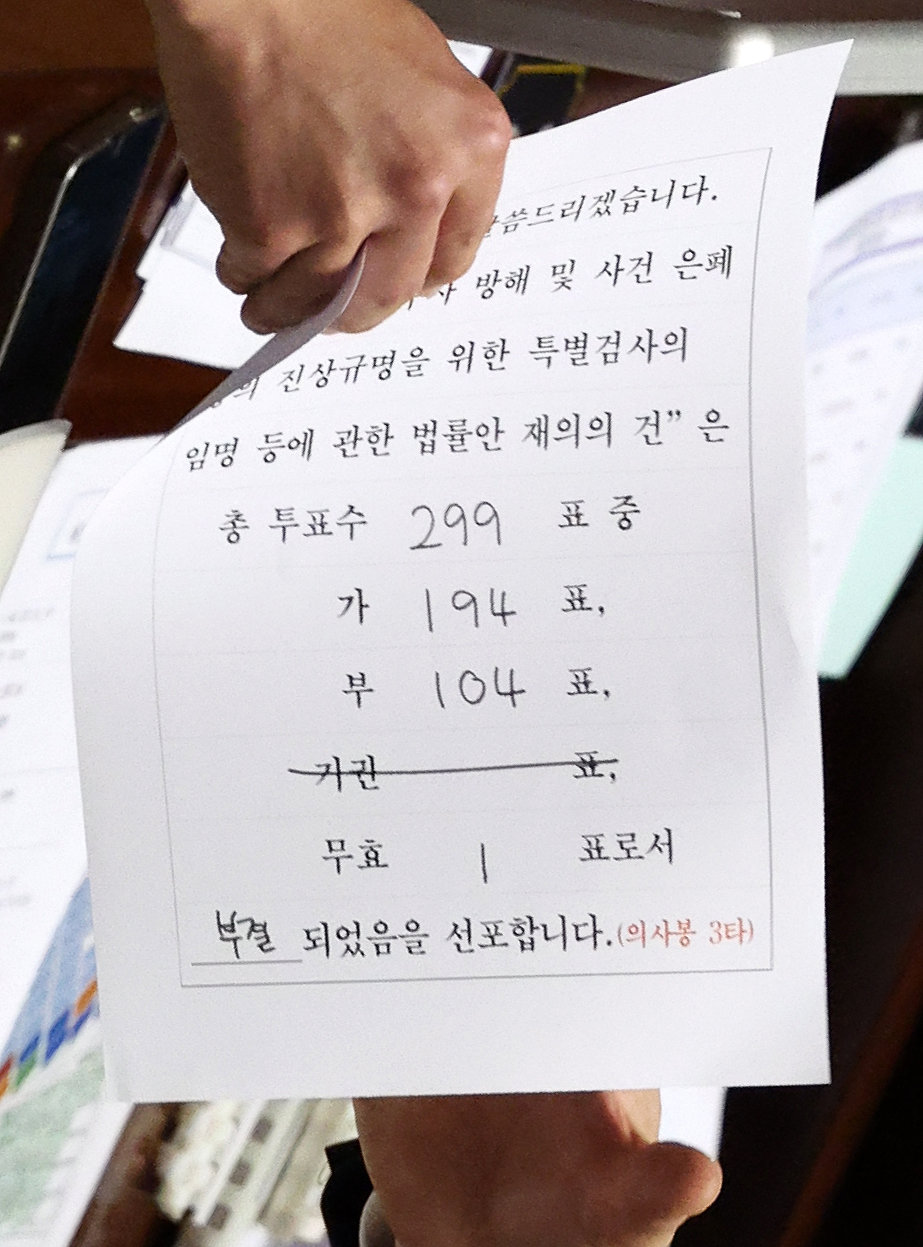 말씀드리겠습니다.
방해 및 사건 은폐
진상규명을 위한 특별검사의
임명 등에 관한 법률안 재의의 건” 은
총 투표수 299 표 중
가 194 표,
부 104 표,
기권 표,
무효 1 표로서
부결 되었음을 선포합니다.(의사봉 3타)